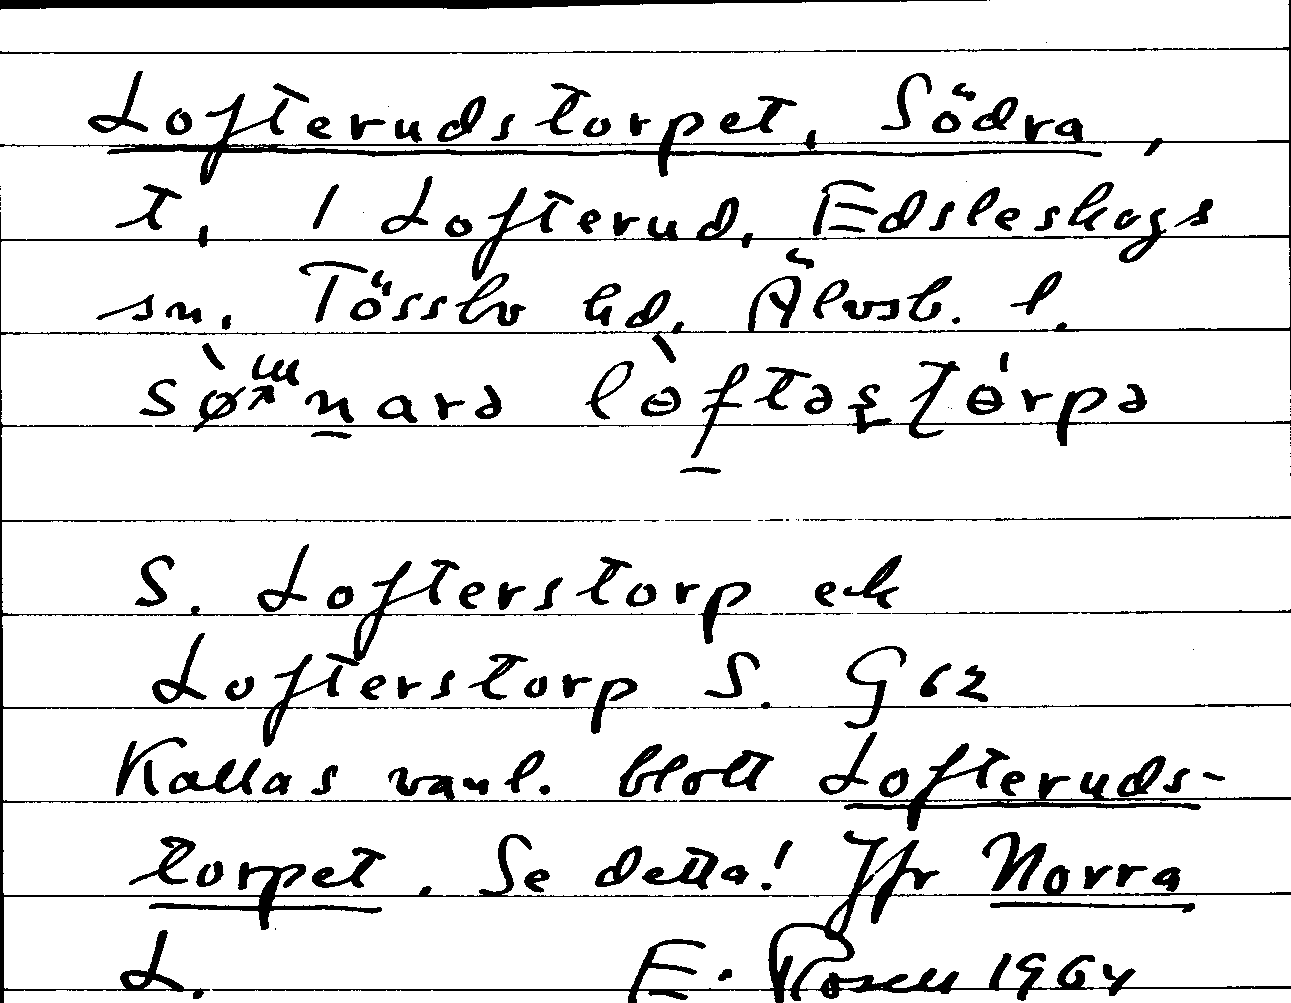 Lofterudstorpet, Södra,
t. 1 Lofterud, Edsleskogs
sn, Tössbo hd, Älvsb. l.
S. Lofterstorp ek
Lofterstorp S. G 62
Kallas vanl. blott Lofteruds-
torpet. Se detta! Jfr Norra
L. E. Rosell 1964